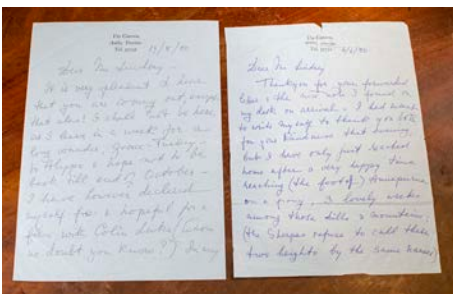 Via Canova,
Asolo, Treviso.
Tel. 52732
Dear Mr Lindsey —
It is very pleasant to hear
that you are coming out, except
that alas! I shall not be here,
as I leave in a week for a
long wander, Greece - Turkey -
to Aleppo & hope not to be
back till end of October —
I have however declared
myself for a hopeful for a
film with Colin
no doubt you know?) In my
Via Canova,
Asolo, Treviso.
Tel. 52732
Dear Mr Lindsey
Thank you for your forwarded
letter & the nice note I found on
my desk on arrival — I had meant
to write myself to thank you both
for your kindness that evening,
but I have only just reached
home after a very happy time
reaching (the foot of) Annapurna
on a pony, 3 lovely weeks
among those hills & mountains;
(the Sherpas refuse to call these
two heights by the same name)